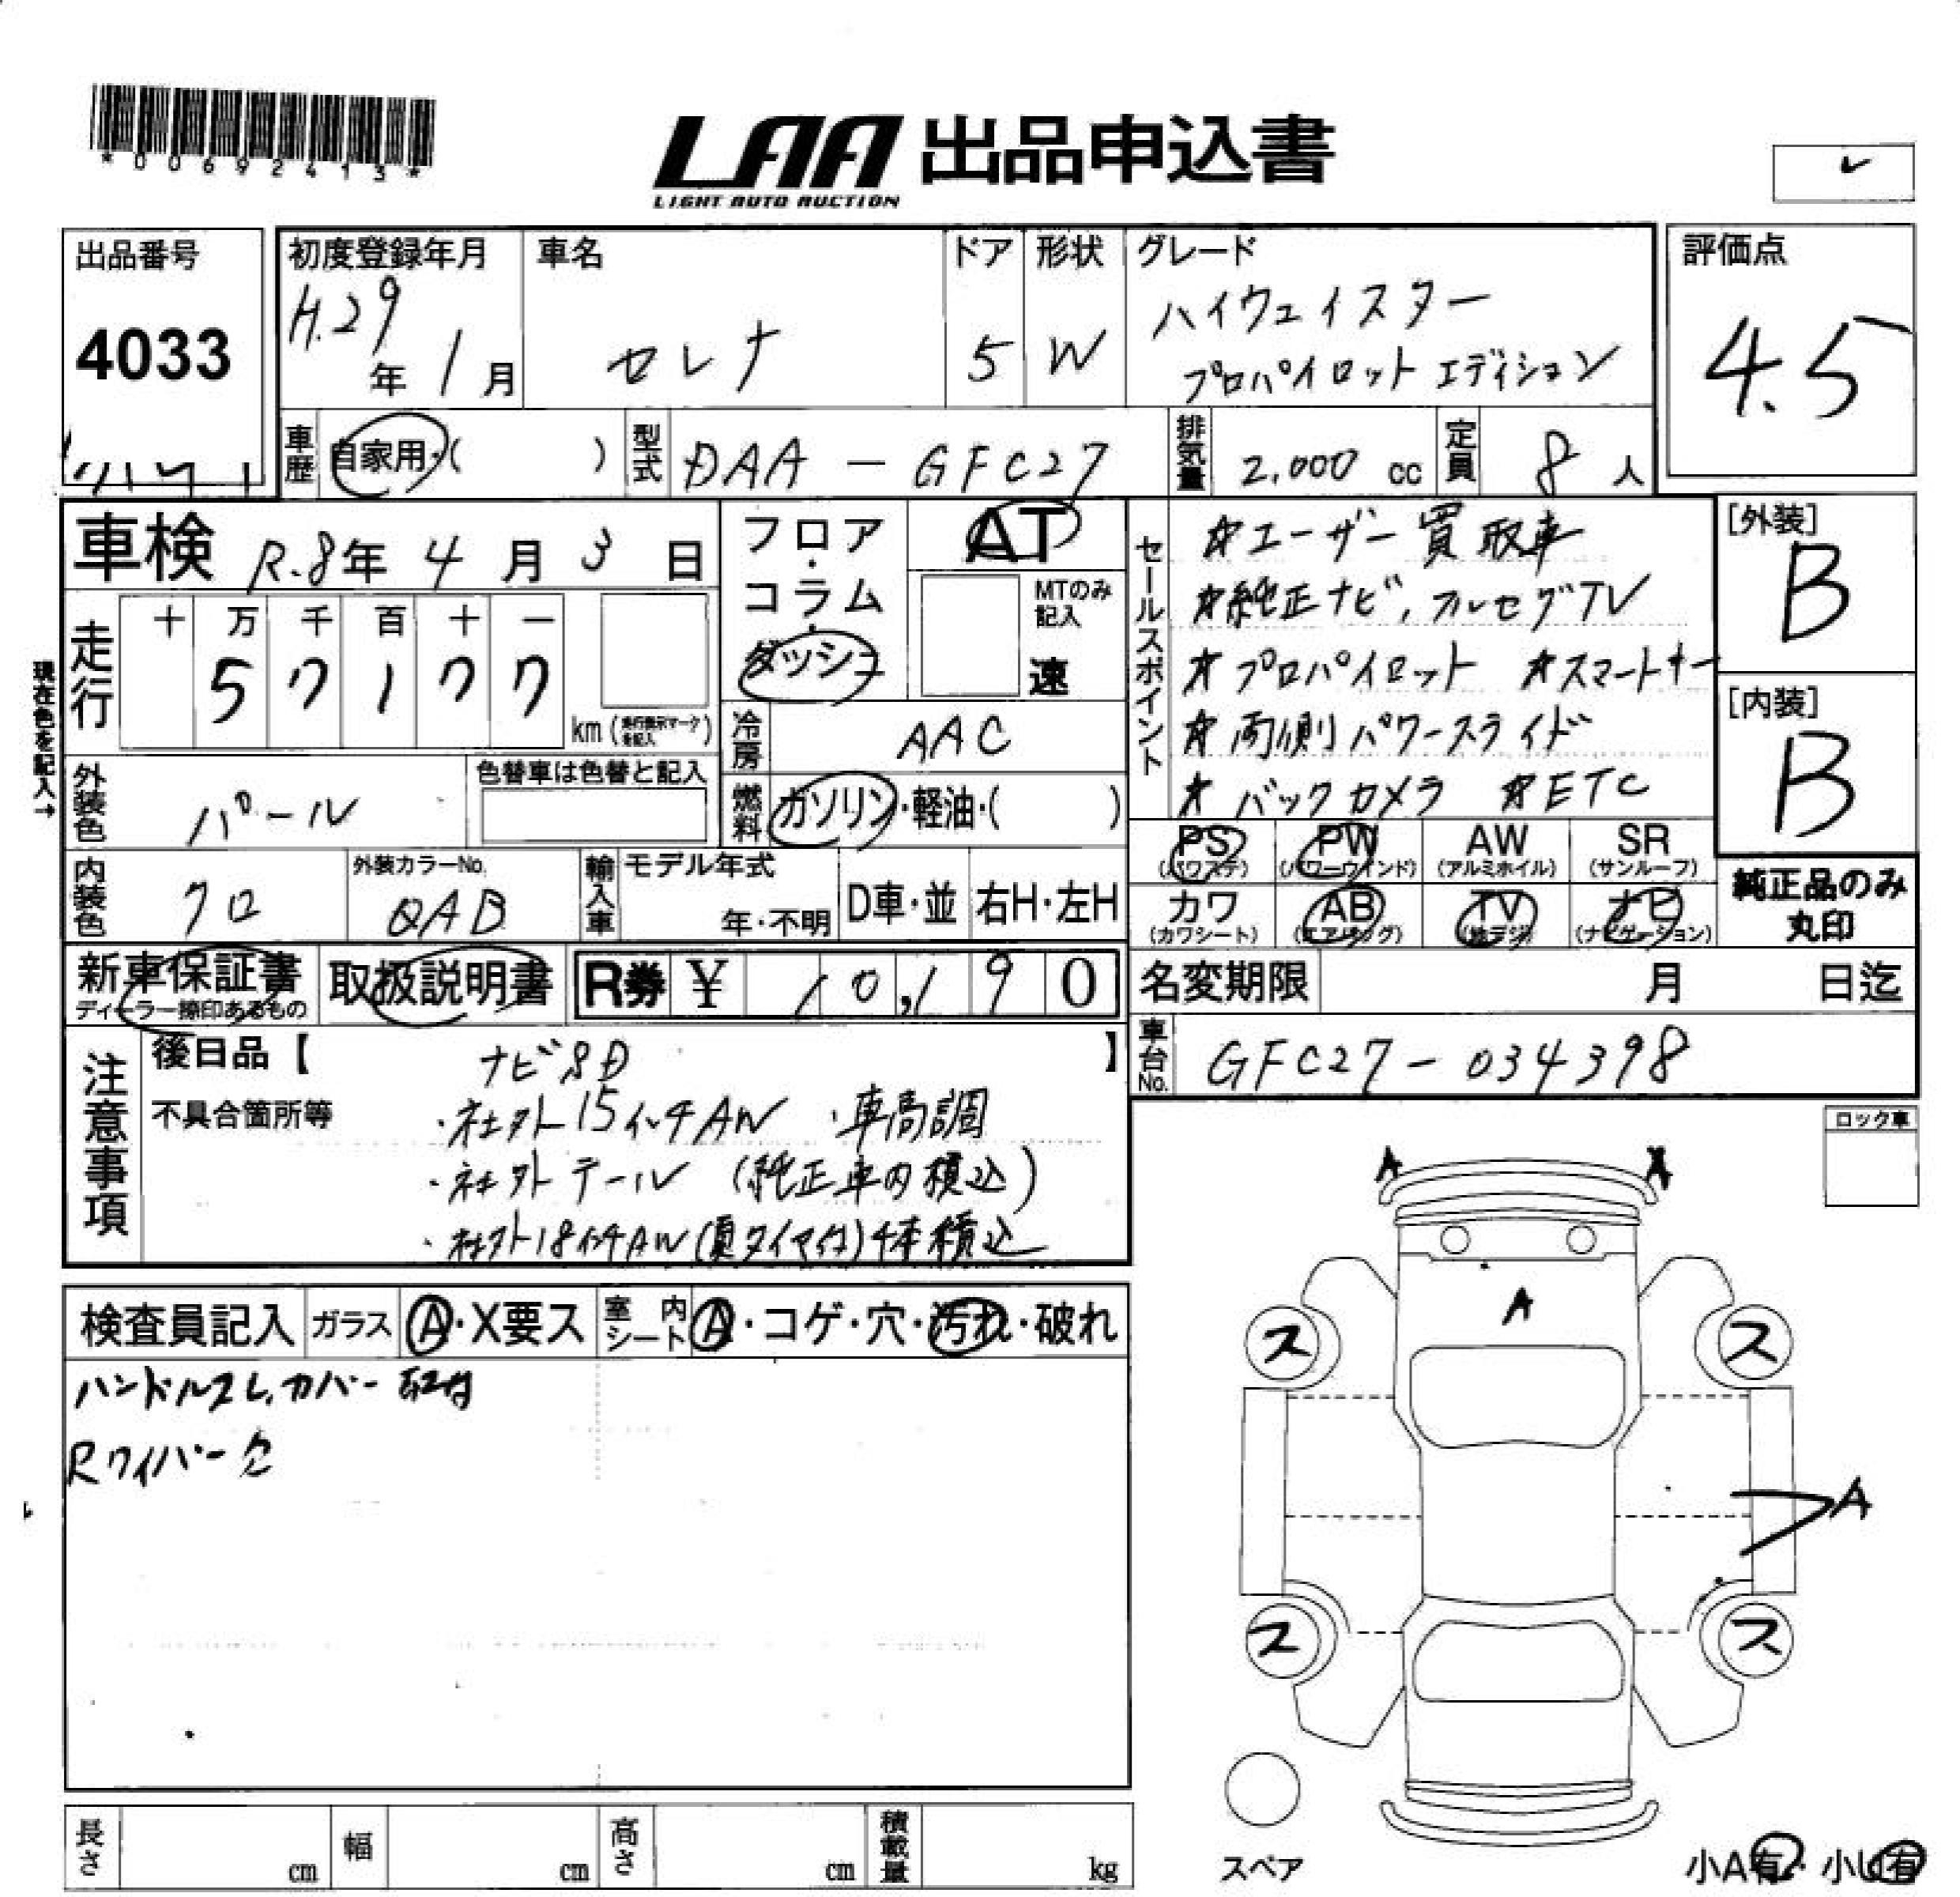 *00692413*
LAA 出品申込書
LIGHT AUTO AUCTION
出品番号
4033
初度登録年月
H.29年 1月
車名
セレナ
ドア
5
形状
W
グレード
ハイウェイスター
プロパイロット エディション
評価点
4.5
車歴 自家用・( )
型式 DAA - GFC27
排気量 2,000 cc
定員 8人
車検 R.8年 4月 3日
フロア・コラム・ダッシュ
AT
MTのみ記入
速
走行
十 万 千 百 十 一
5 7 1 7 7
km (走行表示マークを記入)
現在色を記入→
冷房 AAC
外装色 パール
色替車は色替と記入
燃料 ガソリン・軽油・( )
内装色 クロ
外装カラーNo. QAB
輸入車
モデル年式
年・不明
D車・並
右H・左H
セールスポイント
☆ユーザー買取車
☆純正ナビ,フルセグTV
☆プロパイロット ☆スマートキー
☆両側パワースライド
☆バックカメラ ☆ETC
[外装]
B
[内装]
B
PS (パワステ)
PW (パワーウインド)
AW (アルミホイル)
SR (サンルーフ)
カワ (カワシート)
AB (エアバッグ)
TV (地デジ)
ナビ (ナビゲーション)
純正品のみ丸印
新車保証書
ディーラー捺印あるもの
取扱説明書
R券 ¥ 10,190
名変期限 月 日迄
車台No. GFC27-034398
注意事項
後日品【 ナビSD 】
不具合箇所等
・社外15インチAW ・車高調
・社外テール (純正車内積込)
・社外18インチAW(夏タイヤ付)4本積込
ロック車
検査員記入
ガラス A・X要ス
室内シート A・コゲ・穴・汚れ・破れ
ハンドルスレ,カバー取付
Rワイパー欠
A
A
ス
ス
A
ス
ス
スペア
小A有・小U有
長さ cm
幅 cm
高さ cm
積載量 kg